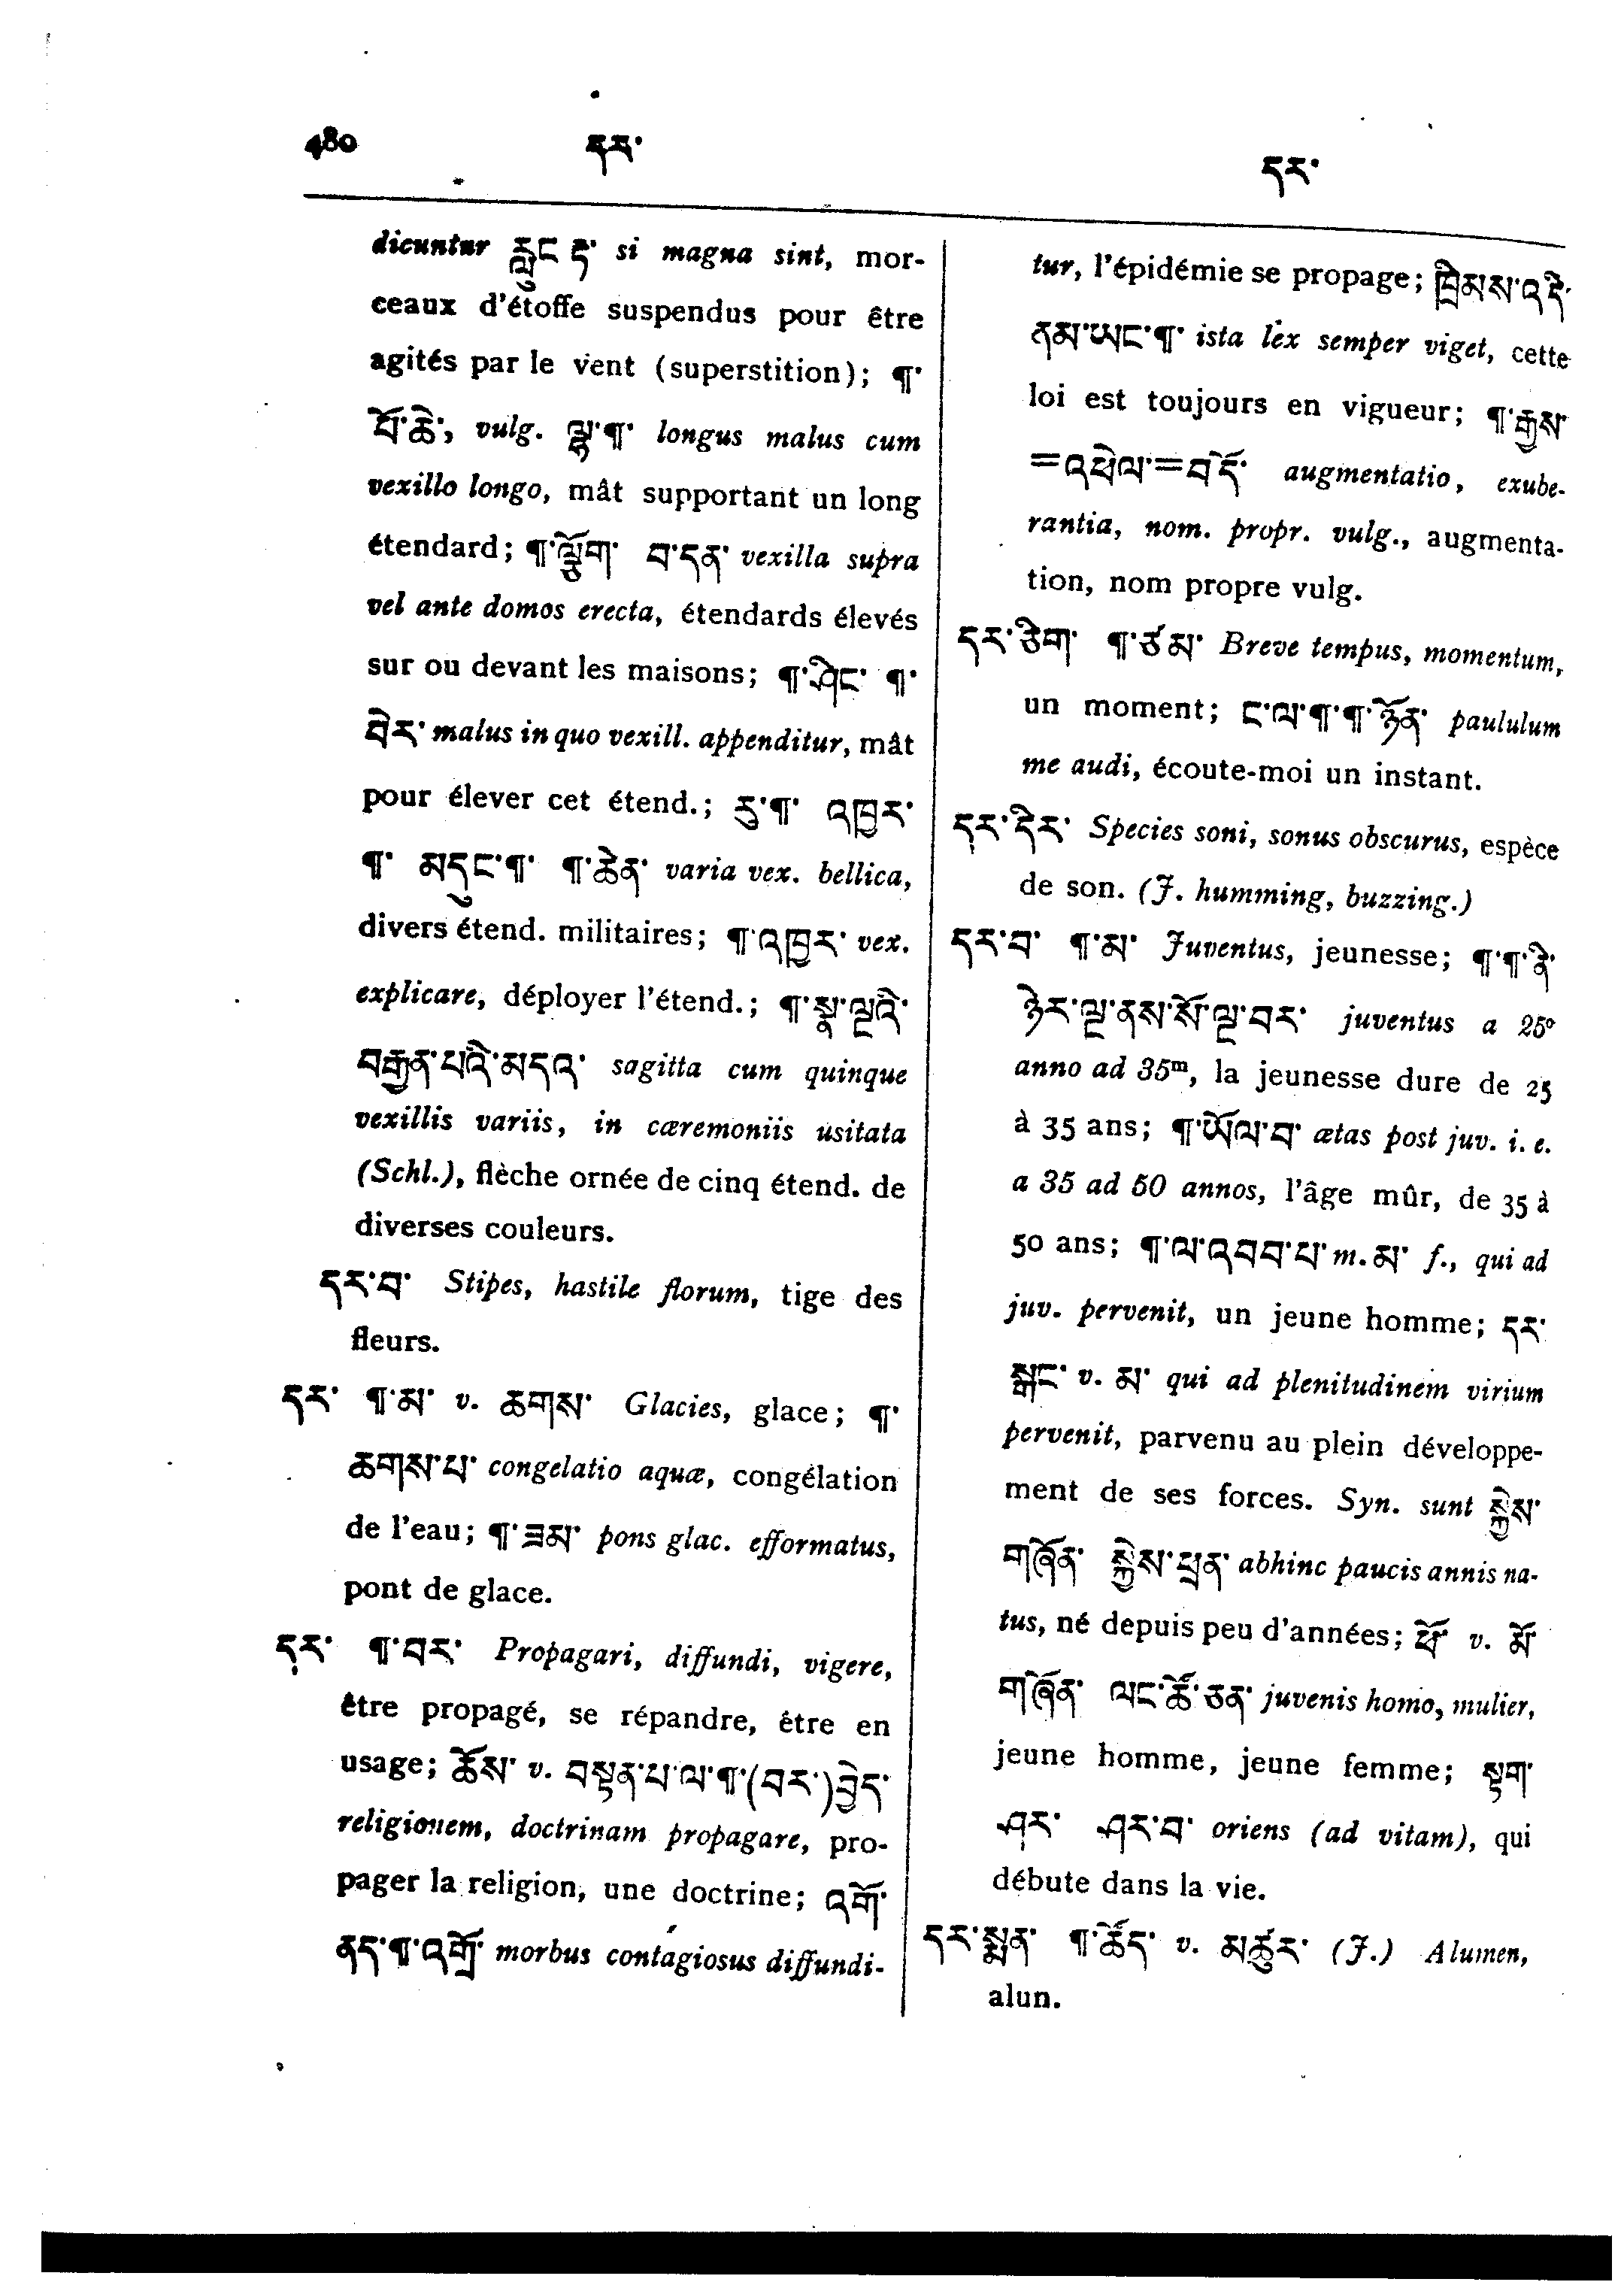 480 དར་ དར་
dicuntur རླུང རྟ་ si magna sint, mor-
ceaux d'étoffe suspendus pour être
agités par le vent (superstition); ¶་
པོ་ཆེ་, vulg. ལྷ་¶་ longus malus cum
vexillo longo, mât supportant un long
étendard; ¶་ལྕོག་ བ་དན་ vexilla supra
vel ante domos erecta, étendards élevés
sur ou devant les maisons; ¶་ཤིང་ ¶་
བེར་ malus in quo vexill. appenditur, mât
pour élever cet étend.; རུ་¶་ འཁྱར་
¶་ མདུང་¶་ ¶་ཆེན་ varia vex. bellica,
divers étend. militaires; ¶་འཁྱར་ vex.
explicare, déployer l'étend.; ¶་སྣ་ལྔའི་
བརྒྱན་པའི་མདའ་ sagitta cum quinque
vexillis variis, in cæremoniis usitata
(Schl.), flèche ornée de cinq étend. de
diverses couleurs.
དར་བ་ Stipes, hastile florum, tige des
fleurs.
དར་ ¶་མ་ v. ཆགས་ Glacies, glace; ¶་
ཆགས་པ་ congelatio aquæ, congélation
de l'eau; ¶་ཟམ་ pons glac. efformatus,
pont de glace.
དར་ ¶་བར་ Propagari, diffundi, vigere,
être propagé, se répandre, être en
usage; ཆོས་ v. བསྟན་པ་ལ་¶་(བར་)བྱེད་
religionem, doctrinam propagare, pro-
pager la religion, une doctrine; འགོ་
ནད་¶་འགྲོ་ morbus contagiosus diffundi-
tur, l'épidémie se propage; ཁྲིམས་འདི་
ནམ་ཡང་¶་ ista lex semper viget, cette
loi est toujours en vigueur; ¶་རྒྱས་
=འཕེལ་=བདོ་ augmentatio, exube-
rantia, nom. propr. vulg., augmenta-
tion, nom propre vulg.
དར་ཅིག་ ¶་ཙམ་ Breve tempus, momentum,
un moment; ང་ལ་¶་¶་ཉོན་ paululum
me audi, écoute-moi un instant.
དར་དིར་ Species soni, sonus obscurus, espèce
de son. (J. humming, buzzing.)
དར་བ་ ¶་མ་ Juventus, jeunesse; ¶་¶་ནི་
ཉེར་ལྔ་ནས་སོ་ལྔ་བར་ juventus a 25º
anno ad 35ᵐ, la jeunesse dure de 25
à 35 ans; ¶་ཡོལ་བ་ ætas post juv. i. e.
a 35 ad 50 annos, l'âge mûr, de 35 à
50 ans; ¶་ལ་འབབ་པ་ m. མ་ f., qui ad
juv. pervenit, un jeune homme; དར་
སྒང་ v. མ་ qui ad plenitudinem virium
pervenit, parvenu au plein développe-
ment de ses forces. Syn. sunt སྐྱེས་
གཞོན་ སྐྱེས་ཕྲན་ abhinc paucis annis na-
tus, né depuis peu d'années; ཕོ་ v. མོ་
གཞོན་ ལང་ཚོ་ཅན་ juvenis homo, mulier,
jeune homme, jeune femme; སྟག་
ཤར་ ཤར་བ་ oriens (ad vitam), qui
débute dans la vie.
དར་སྨན་ ¶་ཚོད་ v. མཚུར་ (J.) Alumen,
alun.